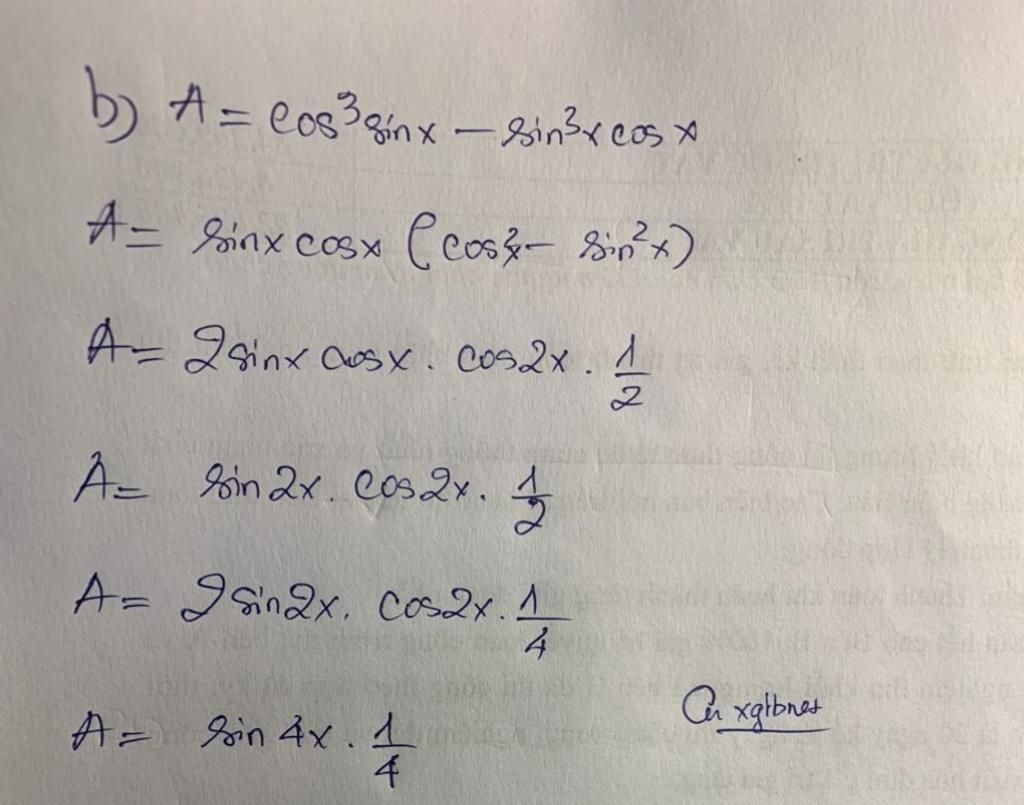 b) A = cos³ sinx – sin³x cos x
A = sinx cosx (cos²x – sin²x)
A = 2sinx cosx . cos2x . 1/2
A = sin 2x . cos2x . 1/2
A = 2sin2x . cos2x . 1/4
A = sin 4x . 1/4